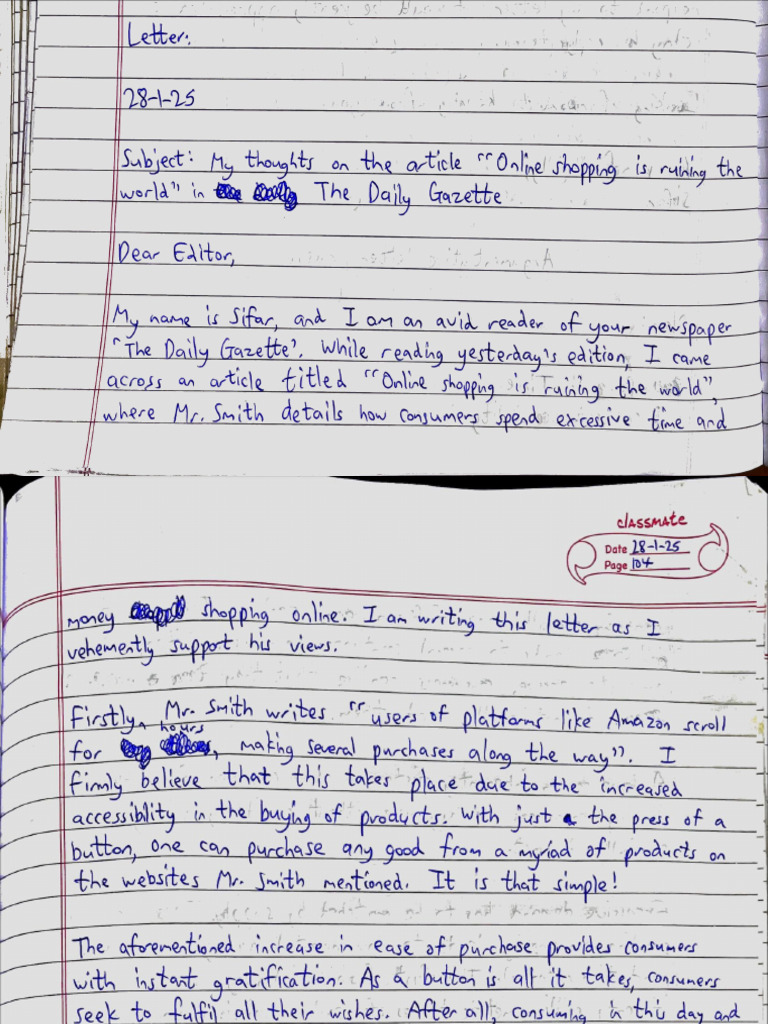 Letter:
28-1-25
Subject: My thoughts on the article "Online shopping is ruining the
world" in The Daily Gazette
Dear Editor,
My name is Sifar, and I am an avid reader of your newspaper
"The Daily Gazette'. While reading yesterday's edition, I came
across an article titled "Online shopping is ruining the world",
where Mr. Smith details how consumers spend excessive time and
classmate
Date 28-1-25
Page 104
money shopping online. I am writing this letter as I
vehemently support his views.
Firstly, Mr. Smith writes "users of platforms like Amazon scroll
for hours, making several purchases along the way". I
firmly believe that this takes place due to the increased
accessiblity in the buying of products. With just the press of a
button, one can purchase any good from a myriad of products on
the websites Mr. Smith mentioned. It is that simple!
The aforementioned increase in ease of purchase provides consumers
with instant gratification. As a button is all it takes, consumers
seek to fulfil all their wishes. After all, consuming in this day and